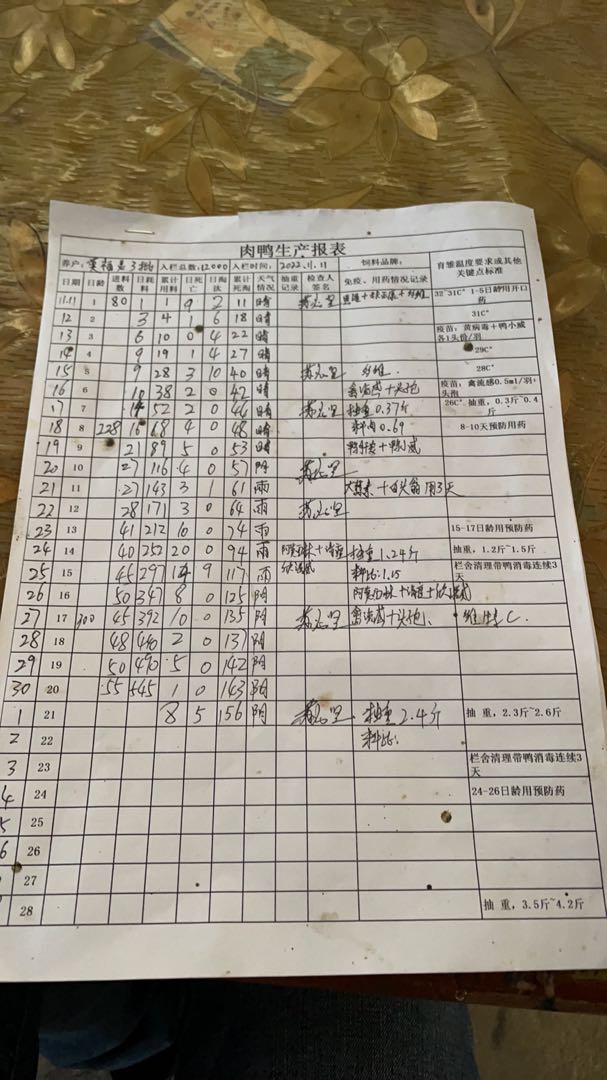 肉鸭生产报表
养户: 3批 入栏总数:12000 入栏时间: 2022.11.11 饲料品牌: 育雏温度要求或其他关键点标准
日期 日龄 进料数 日耗料 累计用料 日死亡 日淘汰 累计死淘 天气情况 抽重记录 检查人签名 免疫、用药情况记录
11.11 1 80 1 1 9 2 11 晴 32-31C° 1-5日龄用开口药
12 2 3 4 1 6 18 晴 31C°
13 3 6 10 0 4 22 晴 疫苗：黄病毒+鸭小威各1头份/羽
14 4 9 19 1 4 27 晴 29C°
15 5 9 28 3 10 40 晴 28C°
16 6 10 38 2 0 42 晴 禽流感+头孢 疫苗：禽流感0.5ml/羽+头孢
17 7 14 52 2 0 44 晴 抽重0.37斤 26C° 抽重，0.3斤~0.4斤
18 8 228 16 68 4 0 48 晴 料肉0.69 8-10天预防用药
19 9 21 89 5 0 53 晴
20 10 27 116 4 0 57 阴
21 11 27 143 3 1 61 雨 用3天
22 12 28 171 3 0 64 雨
23 13 41 212 10 0 74 雨 15-17日龄用预防药
24 14 40 252 20 0 94 雨 抽重1.24斤 抽重，1.2斤~1.5斤
25 15 45 297 14 9 117 雨 料比:1.15 栏舍清理带鸭消毒连续3天
26 16 50 347 8 0 125 阴
27 17 300 45 392 10 0 135 阴 禽流感+头孢 维生C
28 18 48 440 2 0 137 阴
29 19 50 490 5 0 142 阴
30 20 55 545 1 0 143 阴
1 21 8 5 156 阴 抽重2.4斤 抽 重，2.3斤~2.6斤
2 22 料比:
3 23 栏舍清理带鸭消毒连续3天
4 24 24-26日龄用预防药
5 25
6 26
27
28 抽 重，3.5斤~4.2斤